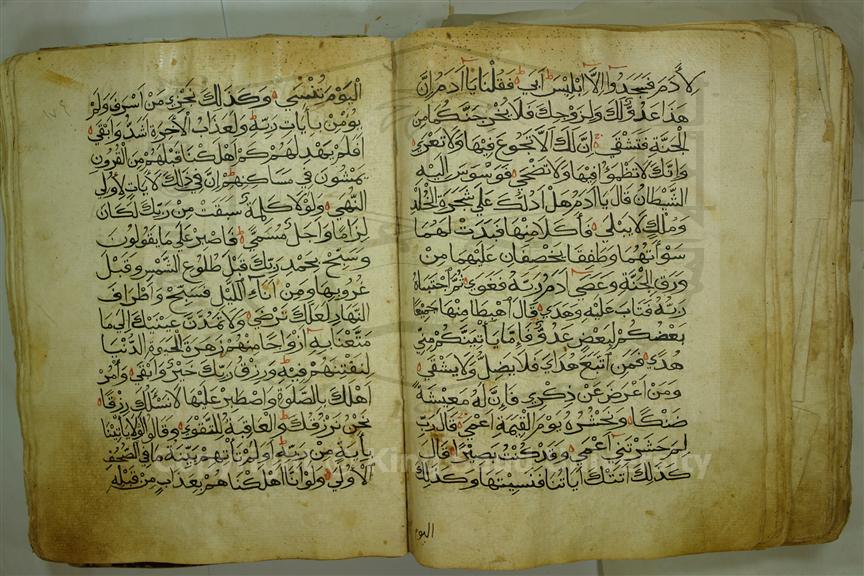 لأدم فسجدوا الا ابليس ابي فقلنا يا ادم ان
هذا عدو لك ولزوجك فلا يخرجنكما من
الجنة فتشقي ان لك الا تجوع فيها ولا تعري
وانك لا تظمؤا فيها ولا تضحي فوسوس اليه
الشيطان قال يا ادم هل ادلك علي شجرة الخلد
وملك لا يبلي فأكلا منها فبدت لهما
سوأتهما وطفقا يخصفان عليهما من
ورق الجنة وعصي ادم ربه فغوي ثم اجتباه
ربه فتاب عليه وهدي قال اهبطا منها جميعا
بعضكم لبعض عدو فإما يأتينكم مني
هدي فمن اتبع هداي فلا يضل ولا يشقي
ومن اعرض عن ذكري فإن له معيشة
ضنكا ونحشره يوم القيمة اعمي قال رب
لم حشرتني اعمي وقد كنت بصيرا قال
كذلك اتتك آياتنا فنسيتها وكذلك
اليوم
اليوم تنسي وكذلك نجزي من اسرف ولم
يؤمن بأيات ربه ولعذاب الأخرة اشد وابقي
افلم يهد لهم كم اهلكنا قبلهم من القرون
يمشون في مساكنهم ان في ذلك لأيات لأولي
النهي ولولا كلمة سبقت من ربك لكان
لزاما واجل مسمي فاصبر علي ما يقولون
وسبح بحمد ربك قبل طلوع الشمس وقبل
غروبها ومن اناءي الليل فسبح واطراف
النهار لعلك ترضي ولا تمدن عينيك الي ما
متعنا به ازواجا منهم زهرة الحيوة الدنيا
لنفتنهم فيه ورزق ربك خير وابقي وأمر
اهلك بالصلوة واصطبر عليها لا نسئلك رزقا
نحن نرزقك والعاقبة للتقوي وقالوا لولا يأتينا
بأية من ربه اولم تأتهم بينة ما في الصحف
الأولي ولو انا اهلكناهم بعذاب من قبله